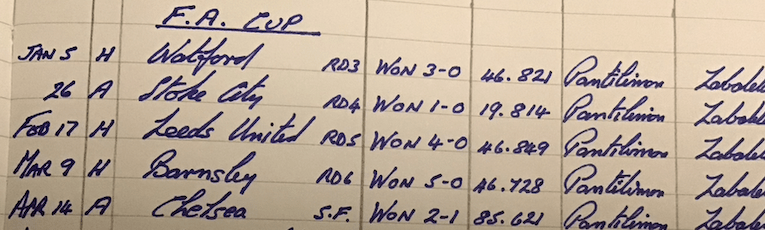 F.A. CUP
JAN 5 H Watford RD3 WON 3-0 46.821 Pantilimon Zabalet
26 A Stoke City RD4 WON 1-0 19.814 Pantilimon Zabalet
FEB 17 H Leeds United RD5 WON 4-0 46.849 Pantilimon Zabalet
MAR 9 H Barnsley RD6 WON 5-0 46.728 Pantilimon Zabalet
APR 14 A Chelsea S.F. WON 2-1 85.621 Pantilimon Zabalet